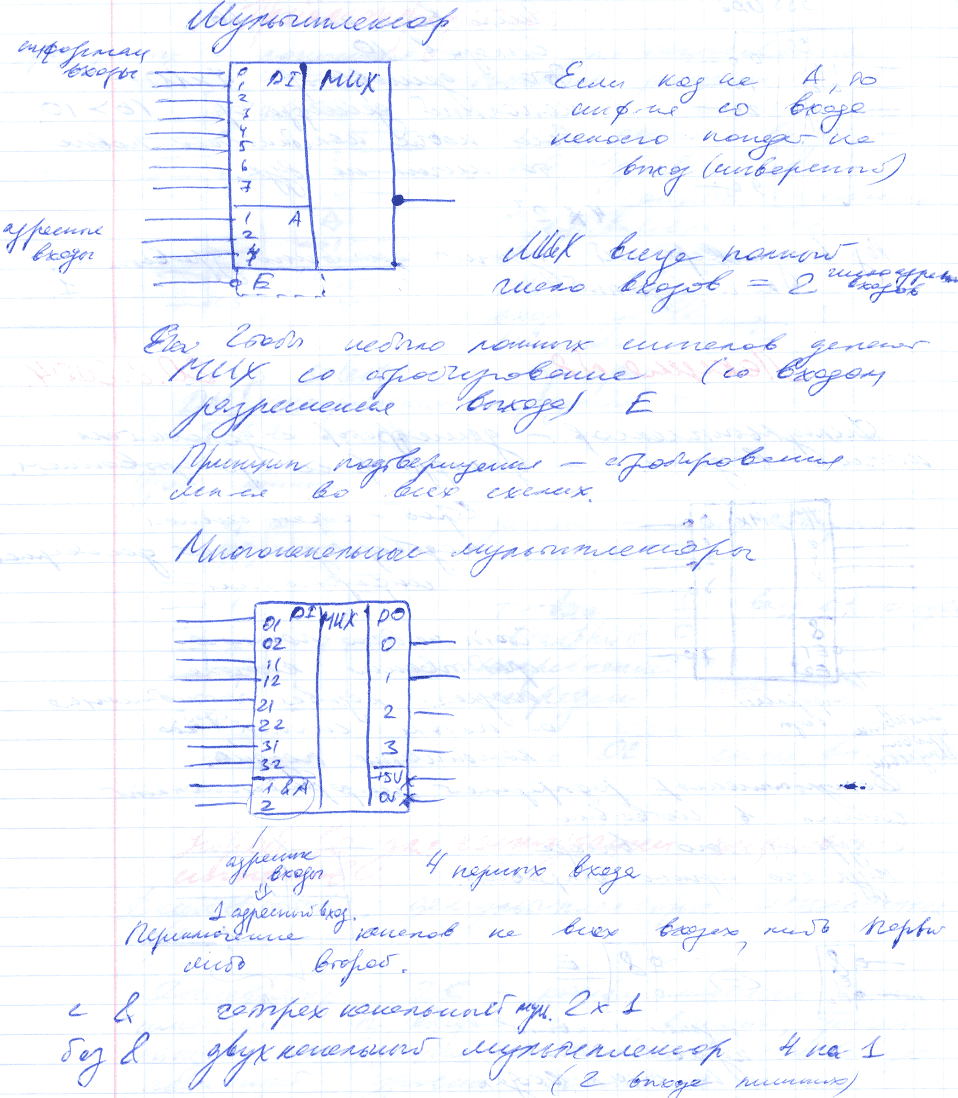 Мультиплексор
информац
входы
0 DI MUX
1
2
3
4
5
6
7
1 A
2
4
E
адресные
входы
Если код на A, то
инф-ия со входа
попадет на
выход (инверсный)
MUX всегда полный
число входов = 2 число адресн
входов
Чтобы небыло ложных сигналов делают
MUX со стробирование (со входом
разрешения выхода) E
Принцип подтверждения – стробирования
во всех схемах.
Многоканальные мультиплексоры
DI MUX DO
01
02 0
11
12 1
21
22 2
31 3
32
+5V
1 & A 0V
2
адресные
входы
4 первых входа
1 адресный вход.
Переключение каналов на всех входах, либо первый
либо второй.
с & четырех канальный мул. 2x1
без & двухканальный мультиплексор 4 на 1
(2 выхода лишних)